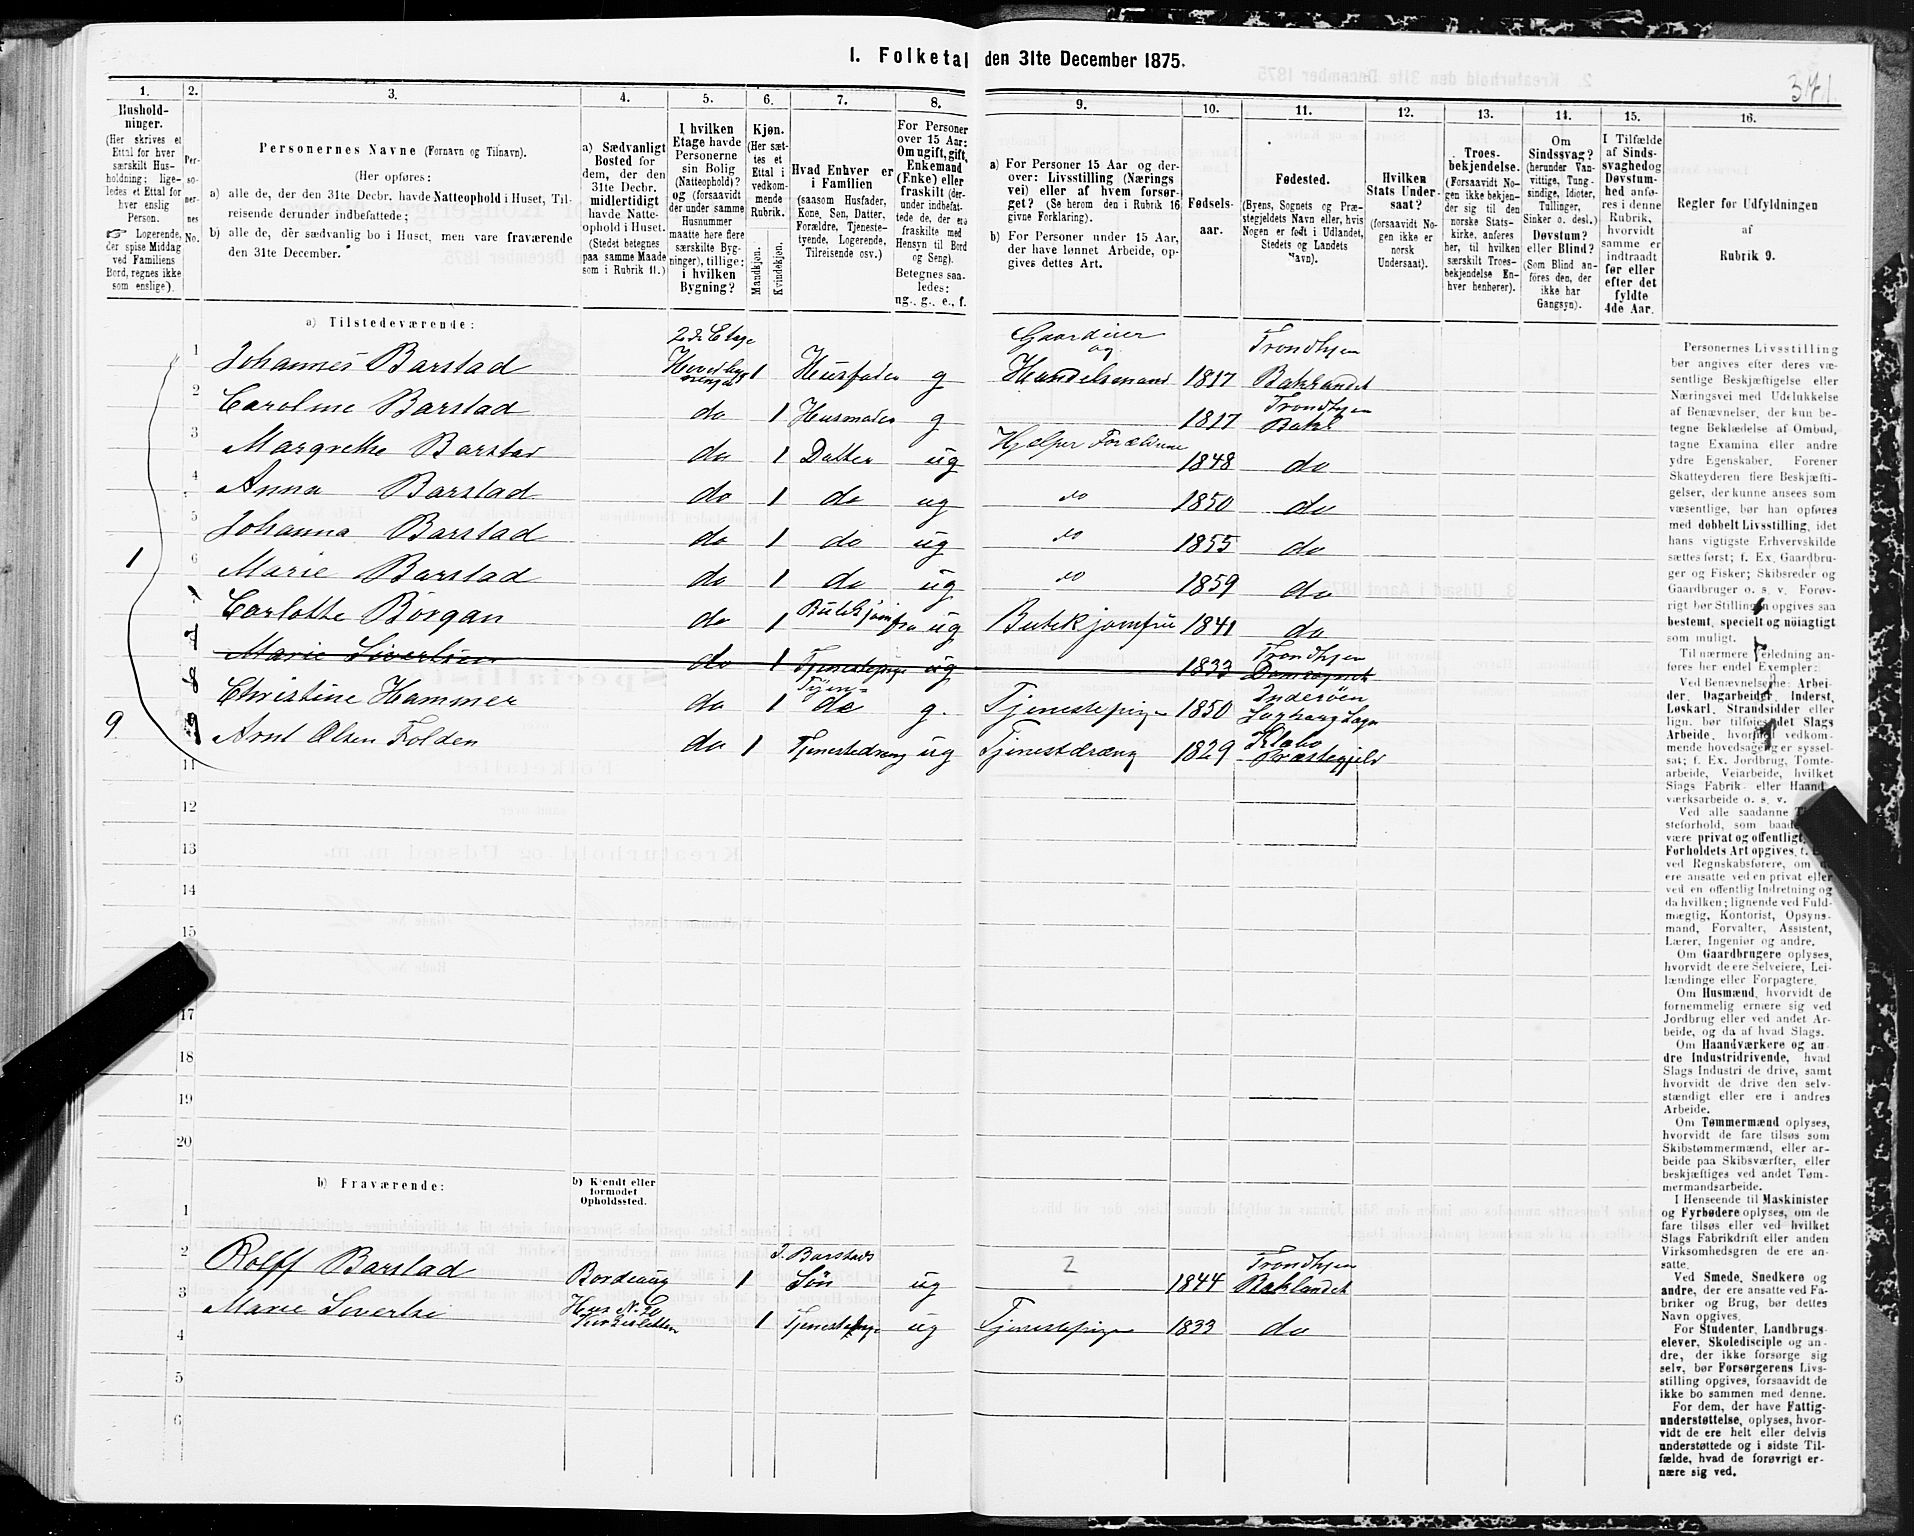 I. Folketal den 31te December 1875.
371.
1. 2. 3. 4. 5. 6. 7. 8. 9. 10. 11. 12. 13. 14. 15. 16.
Hushold-
ninger.
(Her skrives et
Ettal for hver
særskilt Hus-
holdning; lige-
ledes et Ettal for
hver enslig
Person.
☞ Logerende,
der spise Middag
ved Familiens
Bord, regnes ikke
som enslige).
Per-
so-
ner-
nes
No.
Personernes Navne (Fornavn og Tilnavn).
(Her opføres:
a) alle de, der den 31te Decbr. havde Natteophold i Huset, Til-
reisende derunder indbefattede;
b) alle de, der sædvanlig bo i Huset, men vare fraværende
den 31te December.
a) Sædvanligt
Bosted for
dem, der den
31te Decbr.
midlertidigt
havde Natte-
ophold i Huset.
(Stedet betegnes
paa samme Maade
som i Rubrik 11.)
I hvilken
Etage havde
Personerne
sin Bolig
(Natteophold)?
og (forsaavidt
der under samme
Husnummer
maatte høre flere
særskilte Byg-
ninger), tillige:
i hvilken
Bygning?
Kjøn.
(Her sæt-
tes et
Ettal i
vedkom-
mende
Rubrik.
Mandkjøn.
Kvindekjøn.
Hvad Enhver er
i Familien
(saasom Husfader,
Kone, Søn, Datter,
Forældre, Tjeneste-
tyende, Logerende,
Tilreisende osv.)
For Personer
over 15 Aar:
Om ugift, gift,
Enkemand
(Enke) eller
fraskilt (der-
under indbefat-
tede de, der ere
fraskilte med
Hensyn til Bord
og Seng).
Betegnes saa-
ledes:
ug., g., e., f.
a) For Personer 15 Aar og der-
over: Livsstilling (Nærings
vei) eller af hvem forsør-
get? (Se herom den i Rubrik 16
givne Forklaring).
b) For Personer under 15 Aar,
der have lønnet Arbeide, op-
gives dettes Art.
Fødsels-
aar.
Fødested.
(Byens, Sognets og Præ-
stegjeldets Navn eller, hvis
Nogen er født i Udlandet,
Stedets og Landets
Navn).
Hvilken
Stats Under-
saat?
(forsaavidt No-
gen ikke er
norsk
Undersaat).
Troes-
bekjendelse.
(Forsaavidt No-
gen ikke bekjen-
der sig til den
norske Stats-
kirke, anføres
her, til hvilken
særskilt Troes-
bekjendelse En-
hver henhører).
Om
Sindssvag?
(herunder Van-
vittige, Tung-
sindige, Idioter,
Tullinger,
Sinker o. desl.)
Døvstum?
eller Blind?
(Som Blind an-
føres den, der
ikke har
Gangsyn).
I Tilfælde
af Sinds-
svaghed og
Døvstum-
hed anfø-
res i denne
Rubrik,
hvorvidt
samme er
indtraadt
før eller
efter det
fyldte
4de Aar.
Regler før Udfyldningen
af
Rubrik 9.
a) Tilstedeværende:
2de Etage Gaardeier og Trondhjem
1 Johannes Barstad Hovedbygningen 1 Husfader g Handelsmand 1817 Baklandet
2 Caroline Barstad do 1 Husmoder g 1817 Trondhjem Bakl
3 Margrethe Barstad do 1 Datter ug Hjelper Forældrene 1848 do
4 Anna Barstad do 1 do ug do 1850 do
5 Johanna Barstad do 1 do ug do 1855 do
1
6 Marie Barstad do 1 do ug do 1859 do
Carlotte Borgan do 1 Butikjomfru ug Butikjomfru 1841 do
7 Marie Sivertsen do 1 Tjenestepige ug 1833 Trondhjem
8 Christine Hammer do 1 Tjen= do g. Tjenestepige 1850 Inderøen
9 9 Arnt Olsen Folden do 1 Tjenestedreng ug Tjenestdræng 1829 Klæbo Præstegjeld
11
12
13
14
15
17
18
19
20
b) Fraværende:
b) Kjendt eller
formodet
Opholdssted.
1
2 Rolff Barstad Bordeaux 1 J. Barstads Søn ug 2 1844 Trondhjem Baklandet
3 Marie Sivertse Hus No 20 1 Tjenestepige ug Tjenestepige 1833 do
4
5
6
Personernes Livsstilling
bør angives efter deres væ-
sentlige Beskjæftigelse eller
Næringsvei med Udelukkelse
af Benævnelser, der kun be-
tegne Beklædelse af Ombud,
tagne Examina eller andre
ydre Egenskaber. Forener
Skatteyderen flere Beskjæfti-
gelser, der kunne ansees som
væsentlige, bør han opføres
med dobbelt Livsstilling, idet
hans vigtigste Erhvervskilde
sættes først; f. Ex. Gaardbru-
ger og Fisker; Skibsreder og
Gaardbruger o. s. v. Forøv-
rigt bør Stillingen opgives saa
bestemt, specielt og nøiagtigt
som muligt.
Til nærmere Veiledning an-
føres her endel Exempler:
Ved Benævnelserne: Arbei-
der, Dagarbeider, Inderst,
Løskarl, Strandsidder eller
lign. bør tilføies det Slags
Arbeide, hvormed vedkom-
mende hovedsagelig er syssel-
sat; f. Ex. Jordbrug, Tomte-
arbeide, Veiarbeide, hvilket
Slags Fabrik- eller Haand-
værksarbeide o. s. v.
Ved alle saadanne
steforhold, som baade
være privat og offentligt,
Forholdets Art opgives,
ved Regnskabsførere, om
ere ansatte ved en privat eller
ved en offentlig Indretning og
da hvilken; lignende ved Fuld-
mægtig, Kontorist, Opsyns-
mand, Forvalter, Assistent,
Lærer, Ingeniør og andre.
Om Gaardbrugere oplyses,
hvorvidt de ere Selveiere, Lei-
lændinge eller Forpagtere.
Om Husmænd, hvorvidt de
fornemmelig ernære sig ved
Jordbrug eller ved andet Ar-
beide, og da af hvad Slags.
Om Haandværkere og an-
dre Industridrivende, hvad
Slags Industri de drive, samt
hvorvidt de drive den selv-
stændigt eller ere i andres
Arbeide.
Om Tømmermænd oplyses,
hvorvidt de fare tilsøs som
Skibstømmermænd, eller ar-
beide paa Skibsværfter, eller
beskjæftiges ved andet Tøm-
mermandsarbeide.
I Henseende til Maskinister
og Fyrbødere oplyses, om de
fare tilsøs eller ved hvilket
Slags Fabrikdrift eller anden
Virksomhedsgren de ere an-
satte.
Ved Smede, Snedkere og
andre, der ere ansatte ved Fa-
briker og Brug, bør dettes
Navn opgives.
For Studenter, Landbrugs-
elever, Skoledisciple og an-
dre, der ikke forsørge sig
selv, bør Forsørgerens Livs-
stilling opgives, forsaavidt de
ikke bo sammen med denne.
For dem, der have Fattig-
understøttelse, oplyses, hvor-
vidt de ere helt eller delvis
understøttede og i sidste Til-
fælde, hvad de forøvrigt er-
nære sig ved.